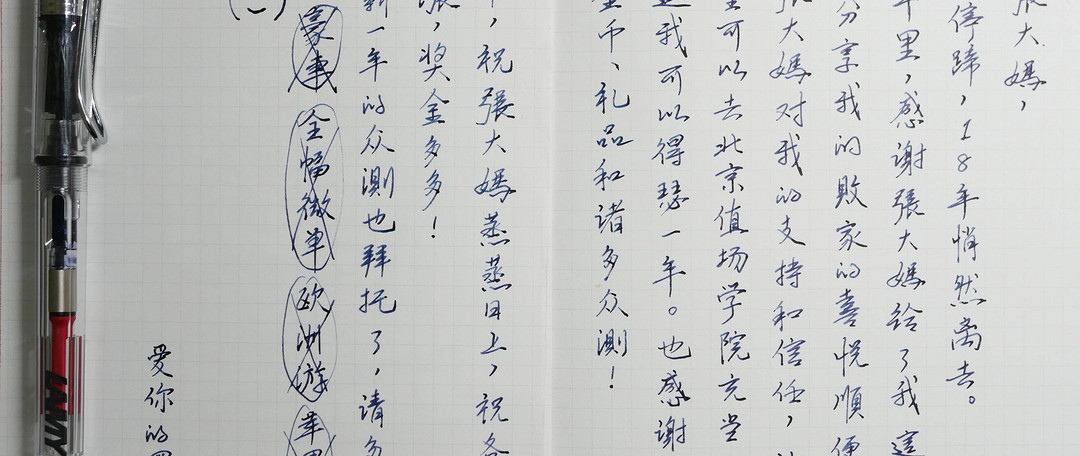 大媽，
停蹄，18年悄然离去。
年里，感謝張大媽给了我這
分享我的敗家的喜悦顺便
張大媽对我的支持和信任，
可以去北京值场学院充堂
我可以得瑟一年。也感謝
金币、礼品和诸多众測！
，祝張大媽蒸蒸日上，祝各
，奖金多多！
新一年的众測也拜托了，请多
豪車 全幅微单 欧洲游 苹
(一)
爱你的
LAMY